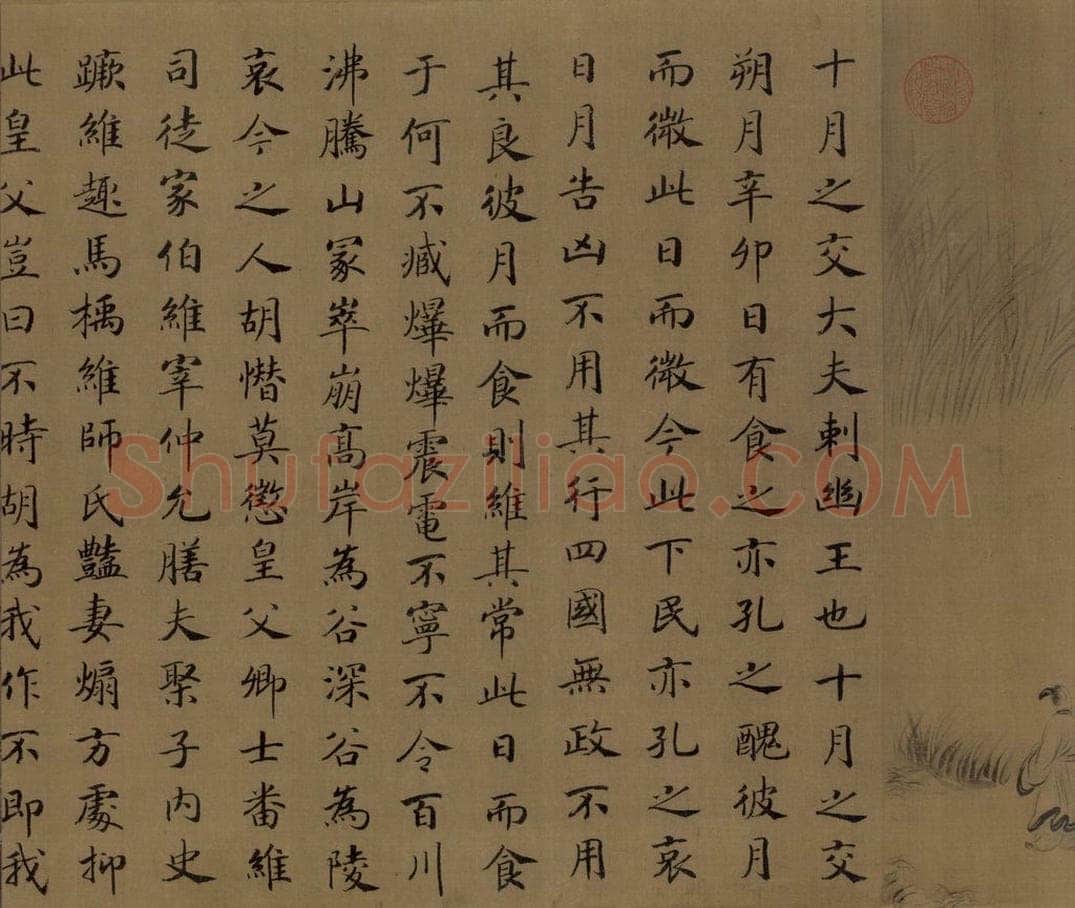 十月之交大夫刺幽王也十月之交
朔月辛卯日有食之亦孔之醜彼月
而微此日而微今此下民亦孔之哀
日月告凶不用其行四國無政不用
其良彼月而食則維其常此日而食
于何不臧爗爗震電不寧不令百川
沸騰山冢崒崩高岸為谷深谷為陵
哀今之人胡憯莫懲皇父卿士番維
司徒家伯維宰仲允膳夫棸子內史
蹶維趣馬楀維師氏豔妻煽方處抑
此皇父豈曰不時胡為我作不即我
Shufaziliao.COM